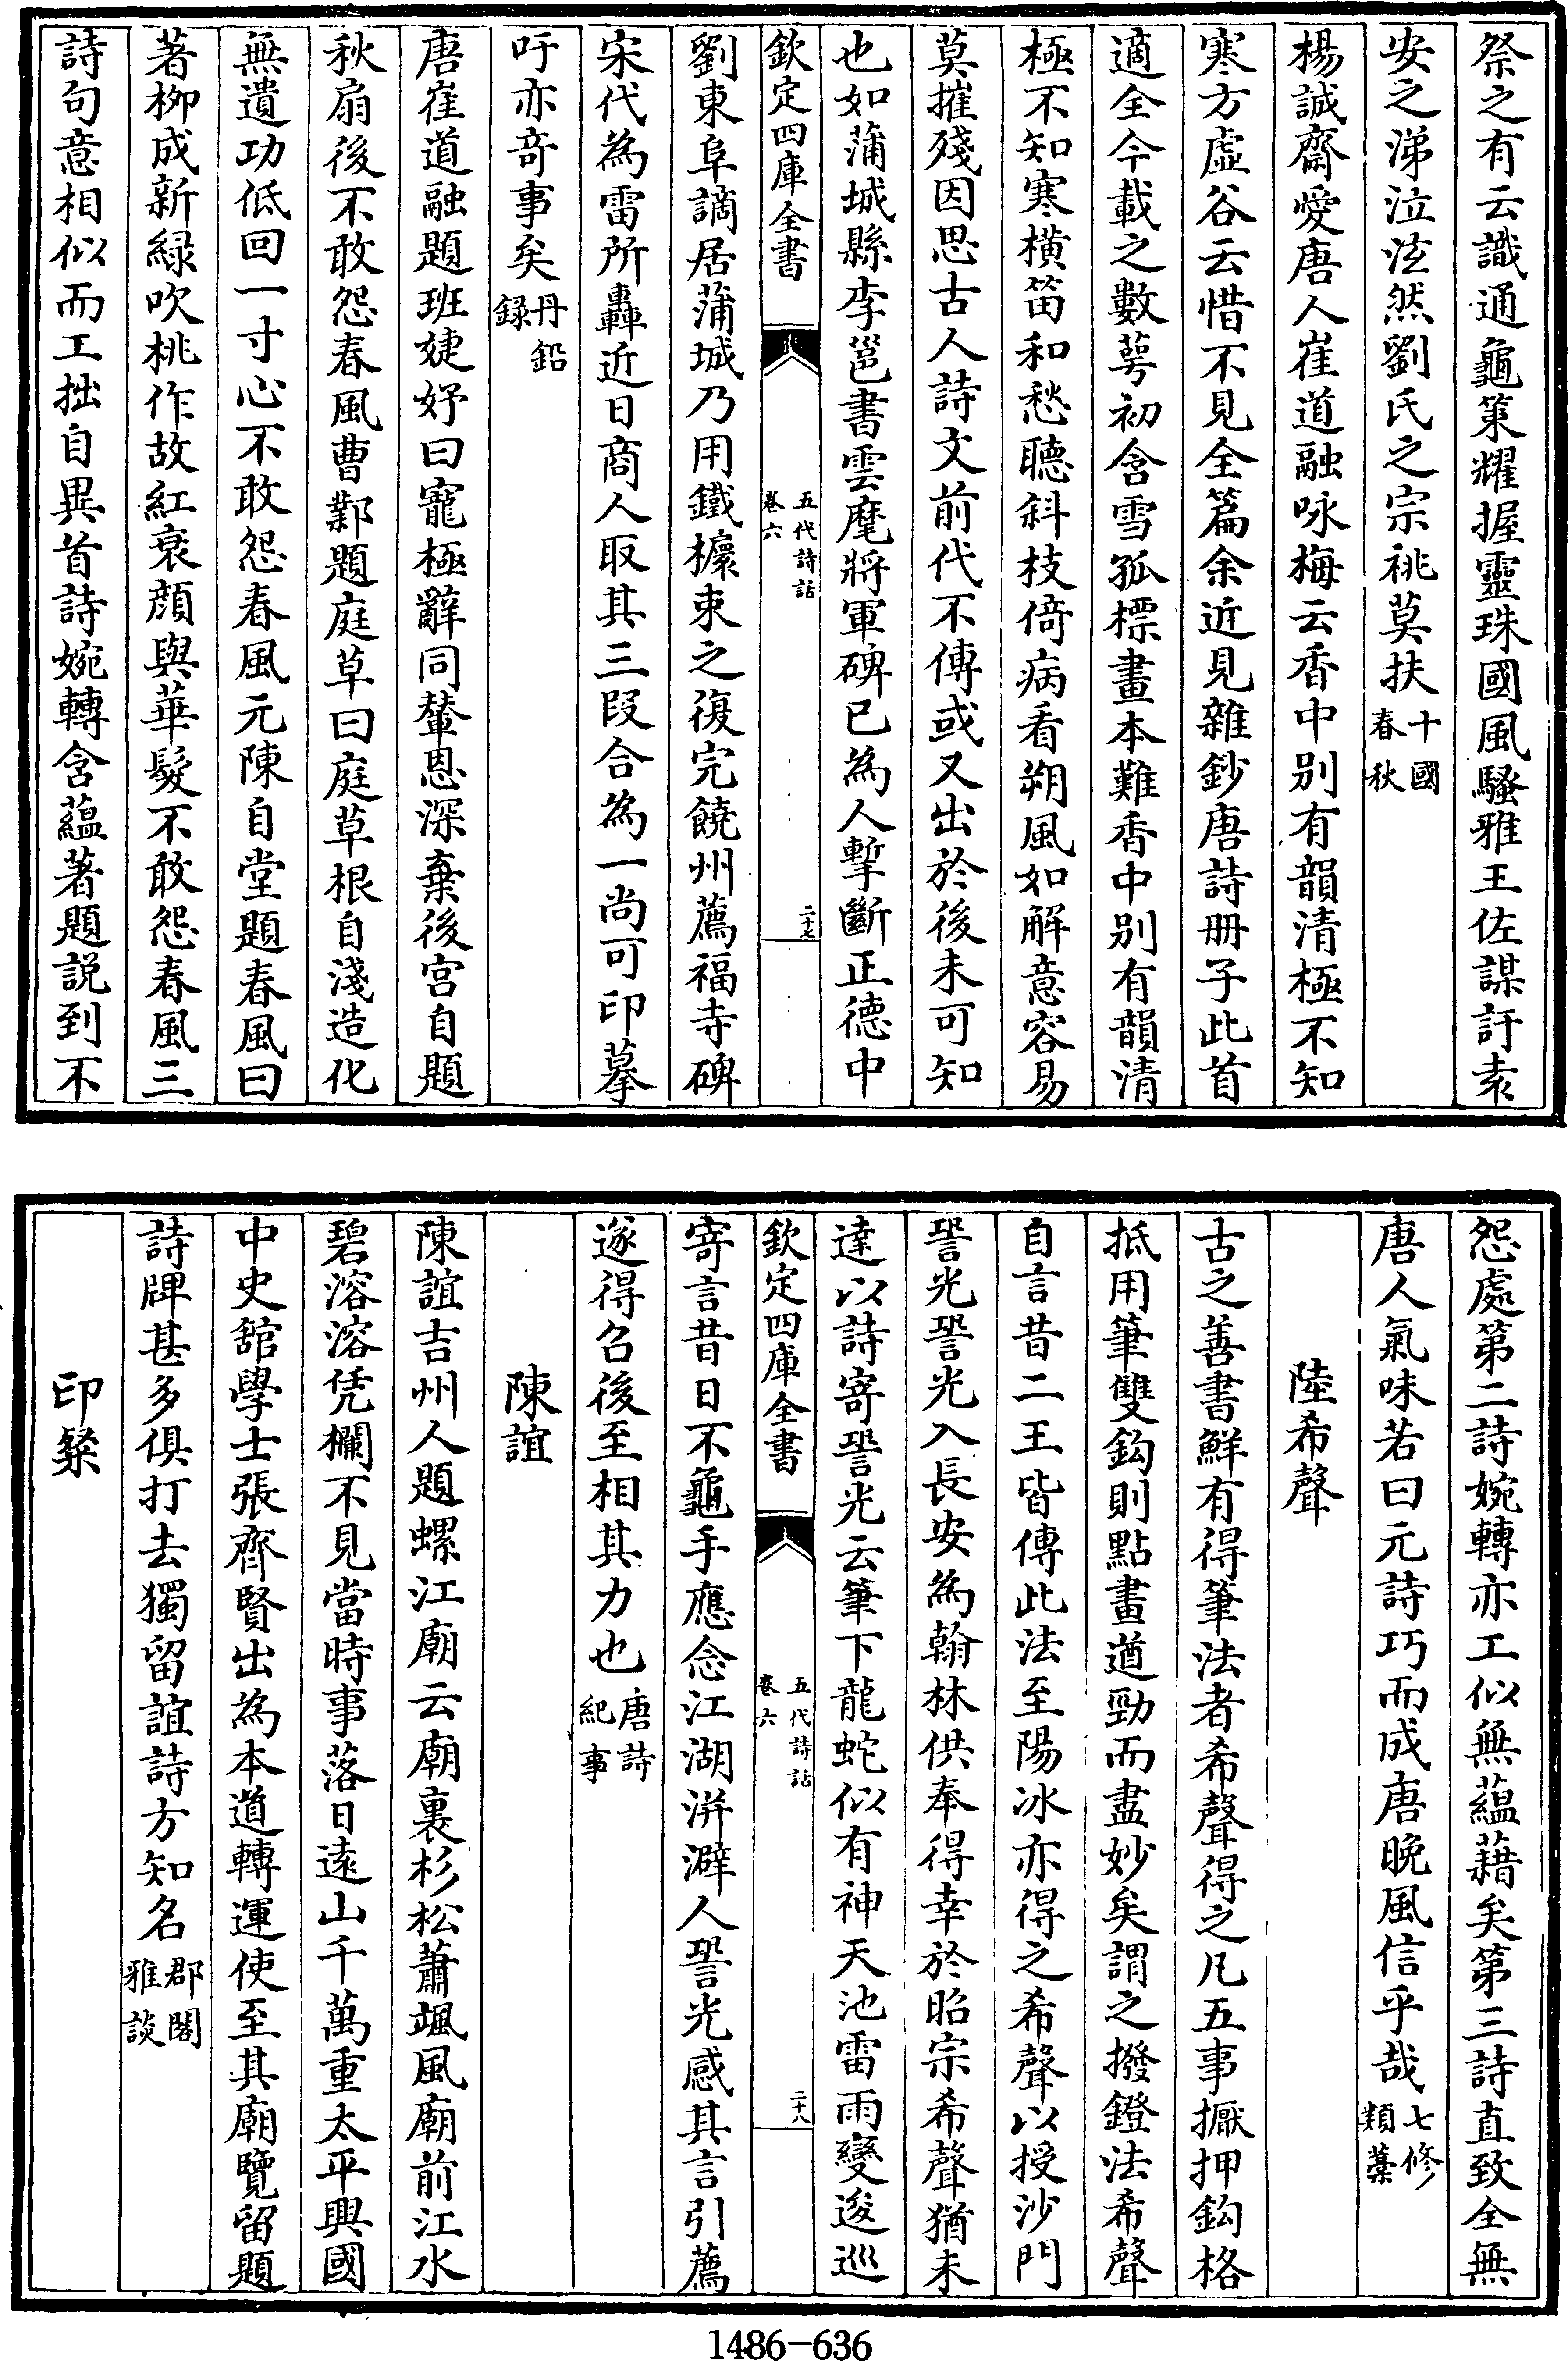 祭之有云識通龜策耀握靈珠國風騷雅王佐謀訏袁
安之涕泣泫然劉氏之宗祧莫扶十國春秋
楊誠齋愛唐人崔道融咏梅云香中别有韻清極不知
寒方虛谷云惜不見全篇余近見雜鈔唐詩册子此首
適全今載之數萼初含雪孤標畫本難香中别有韻清
極不知寒橫笛和愁聽斜枝倚病看朔風如解意容易
莫摧殘因思古人詩文前代不傳或又出於後未可知
也如蒲城縣李邕書雲麾將軍碑已為人塹斷正德中
欽定四庫全書
五代詩話
卷六
二十七
劉東阜謫居蒲城乃用鐵櫦束之復完饒州薦福寺碑
宋代為雷所轟近日商人取其三段合為一尚可印摹
吁亦竒事矣丹鉛録
唐崔道融題班婕妤曰寵極辭同輦恩深棄後宫自題
秋扇後不敢怨春風曹鄴題庭草曰庭草根自淺造化
無遺功低回一寸心不敢怨春風元陳自堂題春風曰
著柳成新緑吹桃作故紅衰顔與華髮不敢怨春風三
詩句意相似而工拙自異首詩婉轉含蘊著題説到不
怨處第二詩婉轉亦工似無蘊藉矣第三詩直致全無
唐人氣味若曰元詩巧而成唐晩風信乎哉七修類藁
陸希聲
古之善書鮮有得筆法者希聲得之凡五事擫押鈎格
抵用筆雙鈎則點畫遒勁而盡妙矣謂之撥鐙法希聲
自言昔二王皆傳此法至陽冰亦得之希聲以授沙門
䛒光䛒光入長安為翰林供奉得幸於昭宗希聲猶未
達以詩寄䛒光云筆下龍蛇似有神天池雷雨變逡巡
欽定四庫全書
五代詩話
卷六
二十八
寄言昔日不龜手應念江湖洴澼人䛒光感其言引薦
遂得召後至相其力也唐詩紀事
陳誼
陳誼吉州人題螺江廟云廟裏杉松蕭颯風廟前江水
碧溶溶凭欄不見當時事落日遠山千萬重太平興國
中史舘學士張齊賢出為本道轉運使至其廟覽留題
詩牌甚多俱打去獨留誼詩方知名郡閣雅談
印粲
1486-636